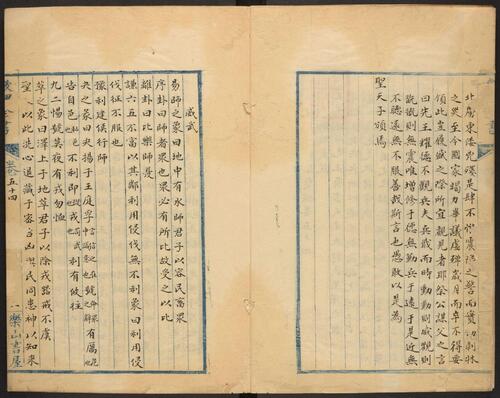 北虜東倭
是肆不惟震鄰之警而實切剥牀
之災至今國家竭力爭議虛殫歲月而卒不得要
領此豈
之際所宜觀見者耶祭公謀父之言
曰先王耀德不觀兵夫兵戢而時動動則威觀則
翫翫則無震唯增修于德無勤兵于遠于是近無
不聽遠無不服善哉斯言也愚敢以是為
聖天子頌焉
威武
易師之象曰地中有水師君子以容民畜衆
序卦曰師者衆也衆必有所比故受之以比
雜卦曰比樂師憂
謙六五不富以其鄰利用侵伐無不利象曰利用侵
伐征不服也
豫利建侯行師
夬之彖曰夬揚于王庭孚號有厲
告自邑不利即戎利有攸往
九二惕號莫夜有戎勿恤
萃之象曰澤上于地萃君子以除戎器戒不虞
聖人以此洗心退藏于密吉凶與民同患神以知來
卷五十四
一樂山書屋